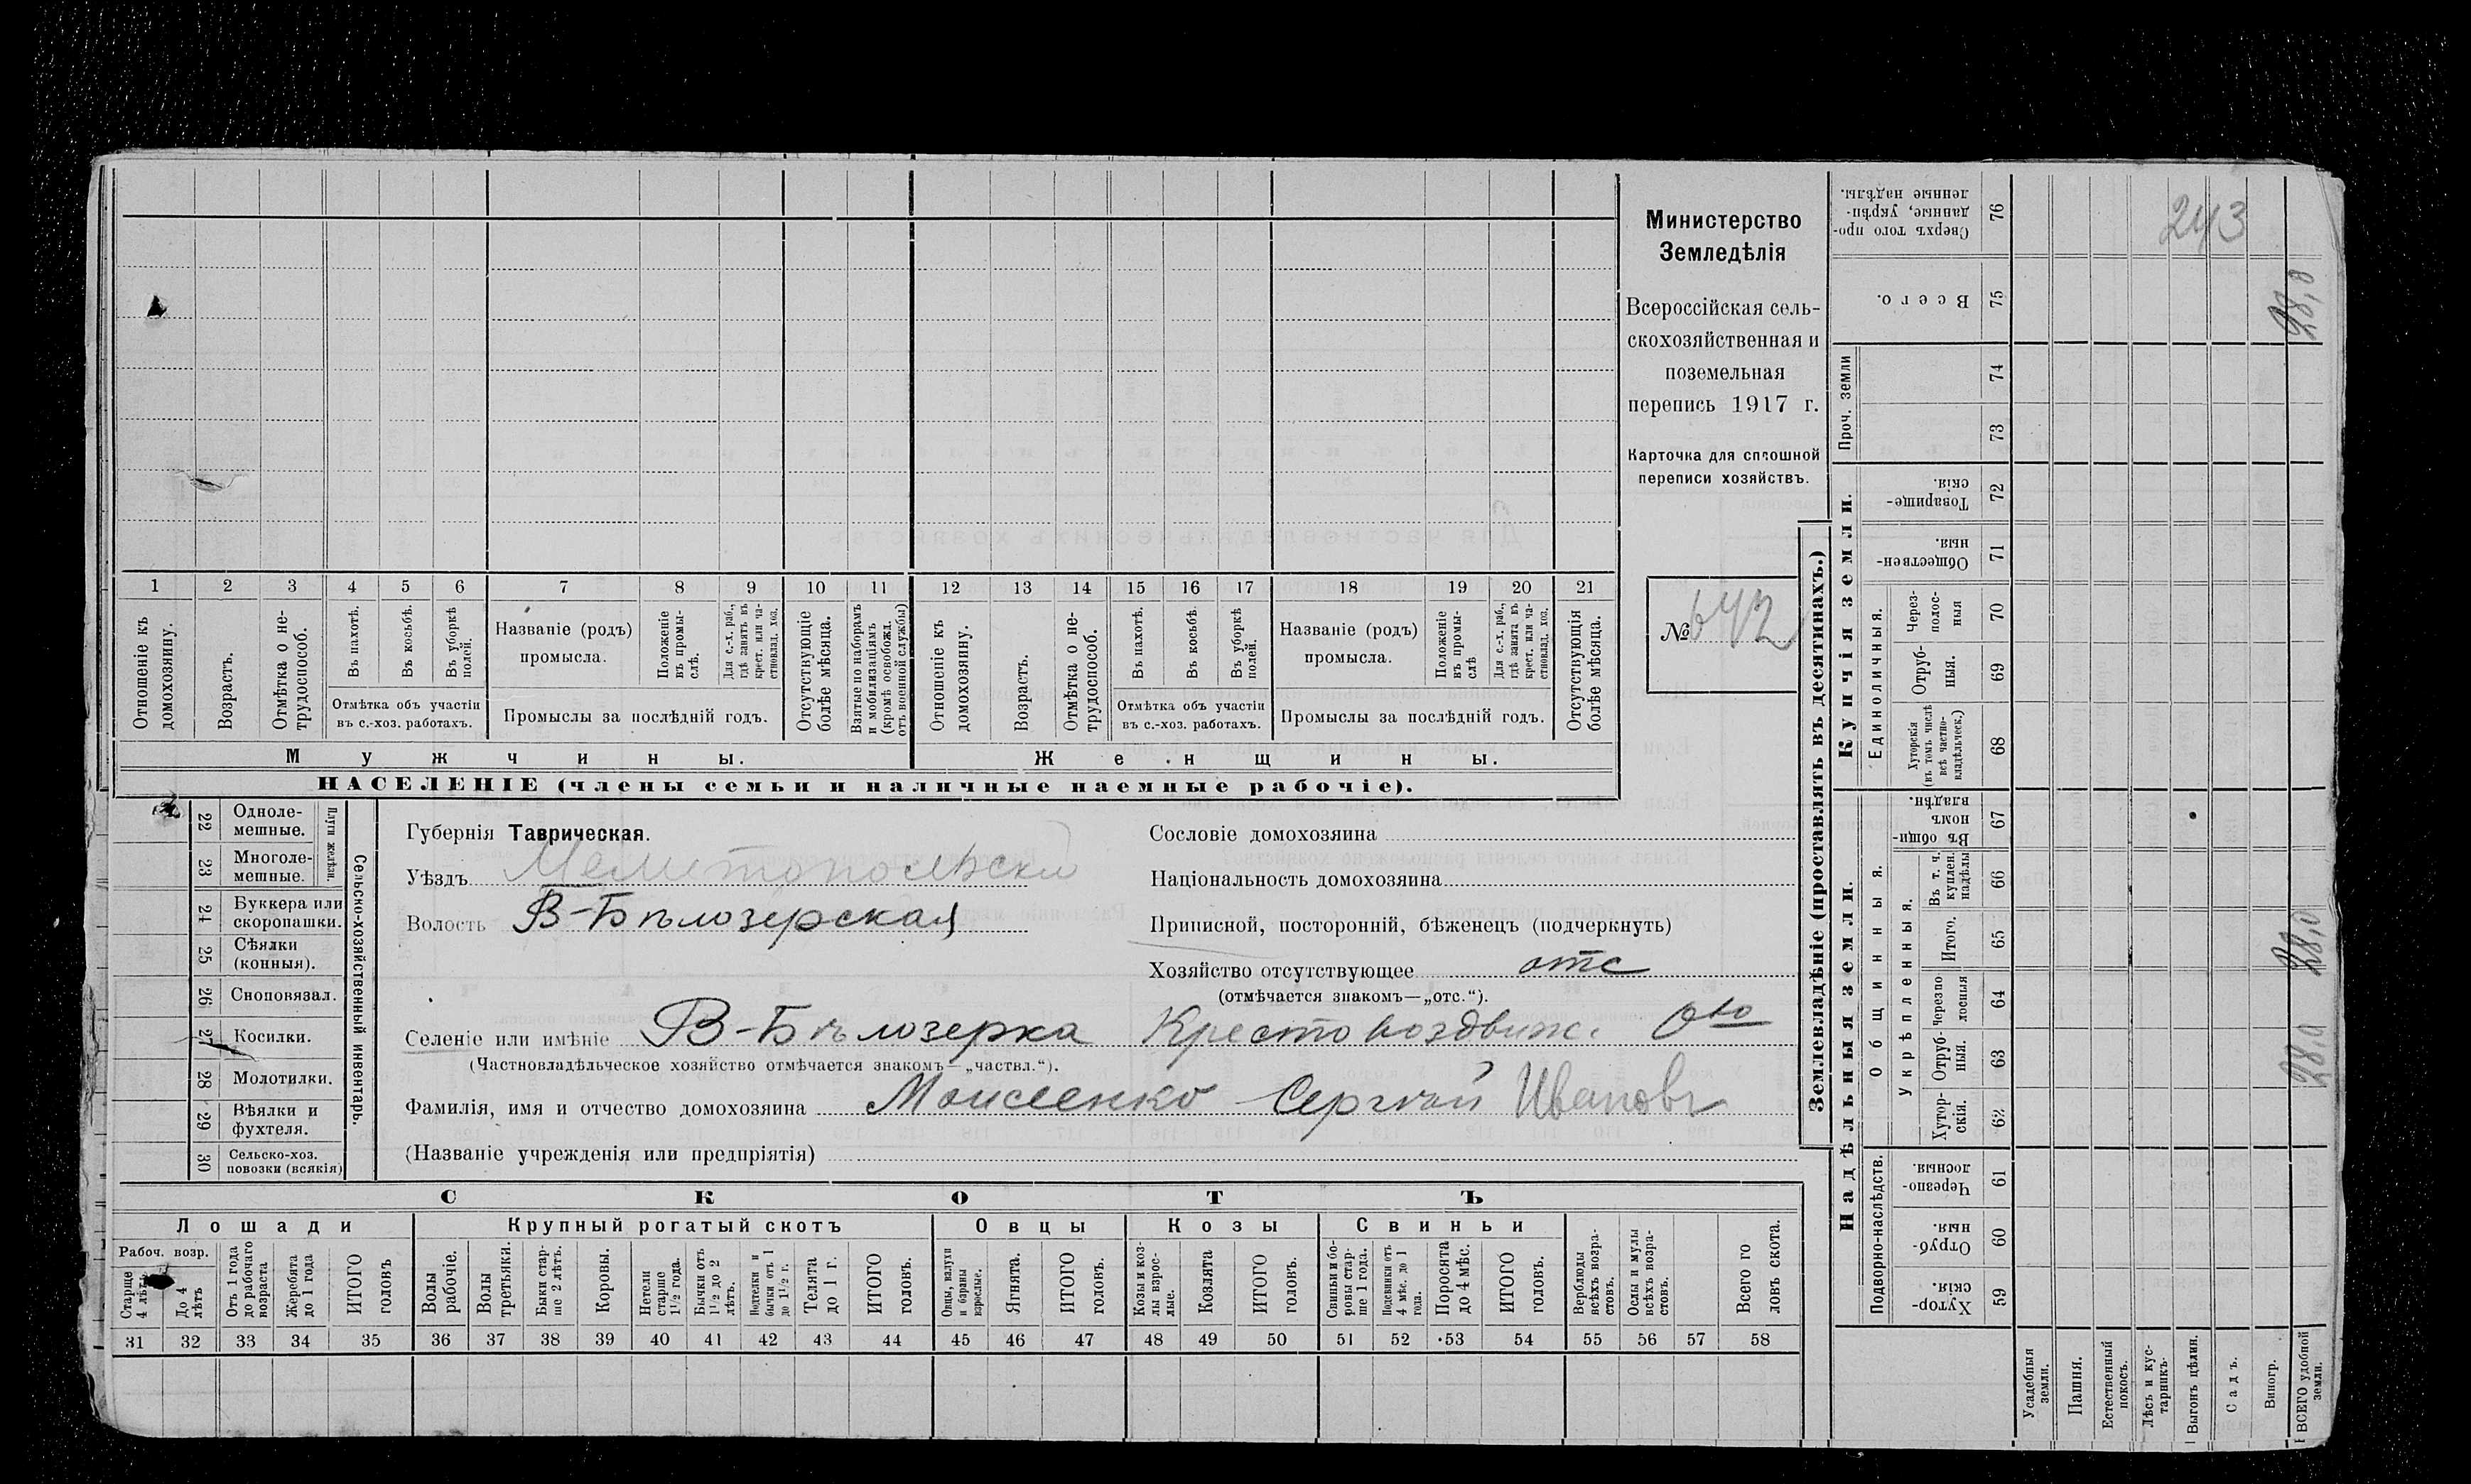 Министерство
Земледѣлія
Всероссійская сель-
скохозяйственная и
поземельная
перепись 1917 г.
Карточка для сплошной
переписи хозяйствъ.
№ 642
243
1 2 3 4 5 6 7 8 9 10 11 12 13 14 15 16 17 18 19 20 21
Отношеніе къ домохозяину.
Возрастъ.
Отмѣтка о не-трудоспособ.
Въ пахотѣ.
Въ косьбѣ.
Въ уборкѣ полей.
Отмѣтка объ участіи въ с.-хоз. работахъ.
Названіе (родъ) промысла.
Положеніе въ промы-слѣ.
Для с.-х. раб., гдѣ занятъ въ крест. или ча-стновлад. хоз.
Промыслы за послѣдній годъ.
Отсутствующіе болѣе мѣсяца.
Взятые по наборамъ и мобилизаціямъ (кромѣ освобожд. отъ военной службы)
Отношеніе къ домохозяину.
Возрастъ.
Отмѣтка о не-трудоспособ.
Въ пахотѣ.
Въ косьбѣ.
Въ уборкѣ полей.
Отмѣтка объ участіи въ с.-хоз. работахъ.
Названіе (родъ) промысла.
Положеніе въ промы-слѣ
Для с.-х. раб., гдѣ занята въ крест. или ча-стновлад. хоз.
Промыслы за послѣдній годъ.
Отсутствующія болѣе мѣсяца.
Мужчины. Женщины.
НАСЕЛЕНІЕ (члены семьи и наличные наемные рабочіе).
22 Одноле-мешные.
23 Многоле-мешные.
Плуги желѣзн.
24 Буккера или скоропашки.
25 Сѣялки (конныя).
26 Сноповязал.
27 Косилки.
28 Молотилки.
29 Вѣялки и фухтеля.
30 Сельско-хоз. повозки (всякія)
Сельско-хозяйственный инвентарь.
Губернія Таврическая.
Уѣздъ Мелитопольскій
Волость В-Бѣлозерская
Сословіе домохозяина
Національность домохозяина
Приписной, посторонній, бѣженецъ (подчеркнуть)
Хозяйство отсутствующее отс
(отмѣчается знакомъ—„отс.“).
Селеніе или имѣніе В-Бѣлозерка Крестовоздвиж. Ово
(Частновладѣльческое хозяйство отмѣчается знакомъ—„частвл.“).
Фамилія, имя и отчество домохозяина Моисеенко Сергѣй Ивановъ
(Названіе учрежденія или предпріятія)
СКОТЪ
Лошади Крупный рогатый скотъ Овцы Козы Свиньи
Рабоч. возр.
Старше 4 лѣтъ
До 4 лѣтъ
Отъ 1 года до рабочаго возраста
Жеребята до 1 года
ИТОГО головъ
Волы рабочіе.
Волы третьяки.
Быки стар-ше 2 лѣтъ.
Коровы.
Нетели старше 1½ года.
Бычки отъ 1½ до 2 лѣтъ.
Подтелки и бычки отъ 1 до 1½ г.
Телята до 1 г.
ИТОГО головъ.
Овцы, валухи и бараны взрослые.
Ягнята.
ИТОГО головъ.
Козы и коз-лы взрос-лые.
Козлята
ИТОГО головъ.
Свиньи и бо-ровы стар-ше 1 года.
Подсвинки отъ 4 мѣс. до 1 года.
Поросята до 4 мѣс.
ИТОГО головъ.
Верблюды всѣхъ возра-стовъ.
Ослы и мулы всѣхъ возра-стовъ.
Всего го ловъ скота.
31 32 33 34 35 36 37 38 39 40 41 42 43 44 45 46 47 48 49 50 51 52 53 54 55 56 57 58
Землевладѣніе (проставлять въ десятинахъ.)
Купчія земли.
Надѣльныя земли.
Сверхъ того про-данные, укрѣп-ленные надѣлы. 76
Всего. 75 28,0
Проч. земли
74
73
Товарище-скія. 72
Обществен-ныя. 71
Единоличныя.
Через-полос-ныя 70
Отруб-ныя. 69
Хуторскія (въ томъ числѣ всѣ частно-владѣльческ.) 68
Общинныя.
Въ общин-номъ владѣн. 67
Укрѣпленныя.
Въ т. ч. куплен. надѣлы 66
Итого. 65 28,0
Черезпо лосныя 64
Отруб-ныя. 63 28,0
Хутор-скія. 62
Подворно-наслѣдств.
Черезпо-лосныя. 61
Отруб-ныя. 60
Хутор-скія. 59
Усадебныя земли.
Пашня.
Естественный покосъ.
Лѣсъ и кус-тарникъ.
Выгонъ цѣлин.
Садъ.
Виногр.
ВСЕГО удобной земли.